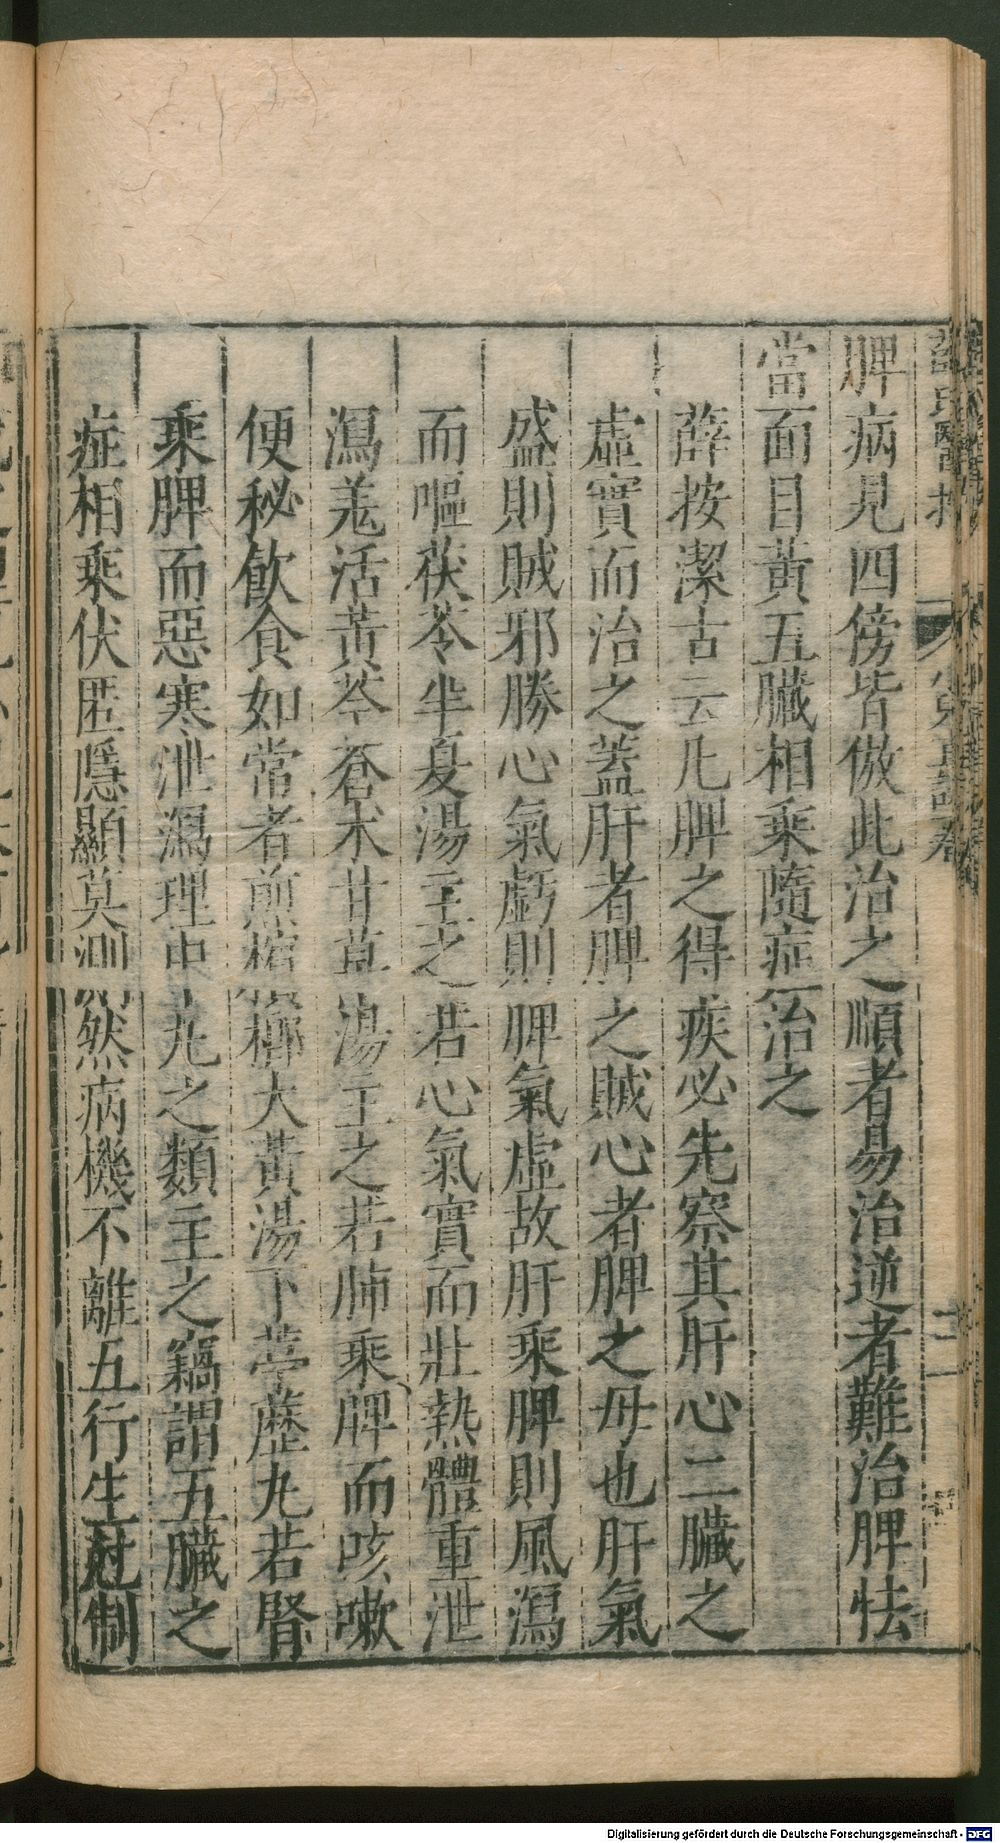 脾病見四傍皆倣此治之順者易治逆者難治脾怯
當面目黃五臟相乘隨症治之
薛按潔古云凡脾之得疾必先察其肝心二臟之
虛實而治之蓋肝者脾之賊心者脾之母也肝氣
盛則賊邪勝心氣虧則脾氣虛故肝乘脾則風瀉
而嘔茯苓半夏湯主之若心氣實而壯熱體重泄
瀉羗活黃芩蒼朮甘草湯主之若肺乘脾而咳嗽
便秘飲食如常者煎檳榔大黃湯下葶藶丸若腎
乘脾而惡寒泄瀉理中丸之類主之竊謂五臟之
症相乘伏匿隱顯莫測然病機不離五行生尅制
Digitalisierung gefördert durch die Deutsche Forschungsgemeinschaft - DFG